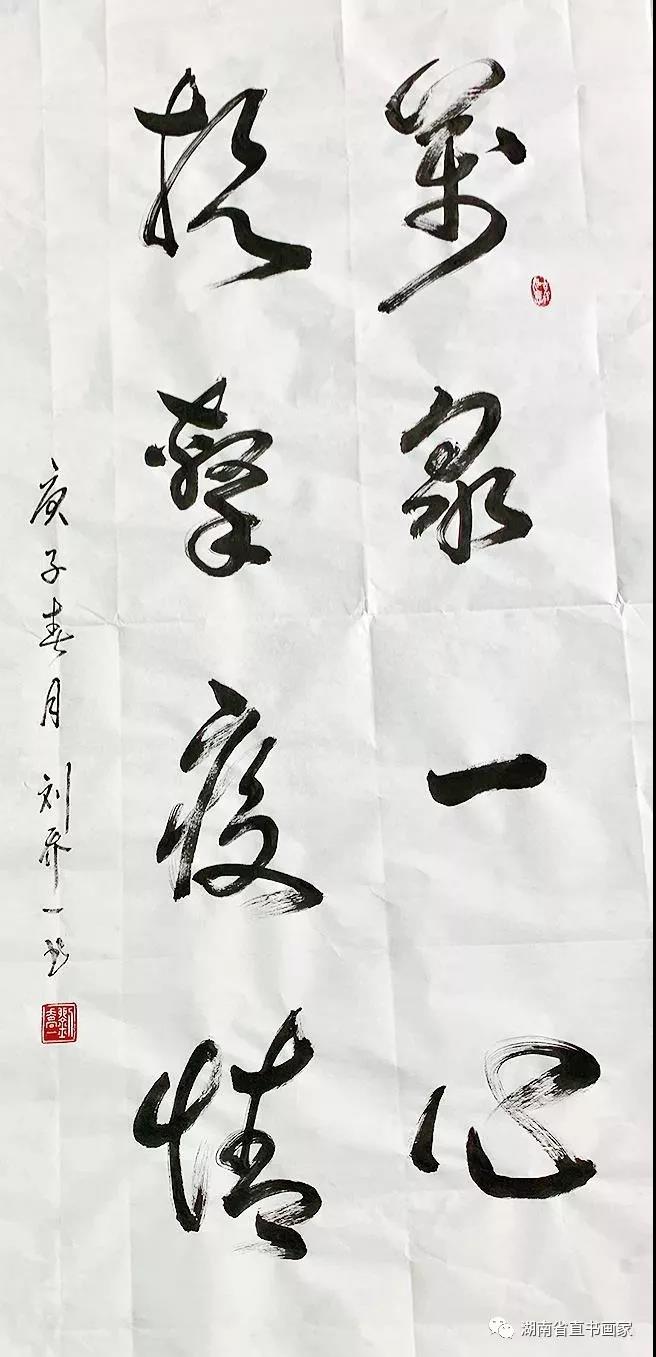 萬衆一心
抗擊疫情
庚子春月 刘乔一书
湖南省直书画家